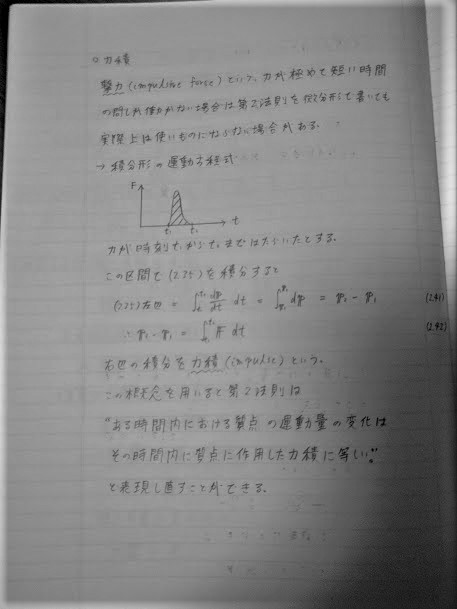 ○力積
撃力(impulsive force)という、力が極めて短い時間
の間しか働かない場合は第2法則を微分形で書いても
実際上は使いものにならない場合がある。
→ 積分形の運動方程式
F
t₁ t₂ t
力が時刻t₁からt₂まではたらいたとする。
この区間で(2.25)を積分すると
(2.25)左辺 = ∫_{t₁}^{t₂} dp/dt dt = ∫_{p₁}^{p₂} dp = p₂ - p₁ (2.41)
∴ p₂ - p₁ = ∫_{t₁}^{t₂} F dt (2.42)
右辺の積分を力積(impulse)という。
この概念を用いると第2法則は
"ある時間内における質点の運動量の変化は
その時間内に質点に作用した力積に等しい。"
と表現し直すことができる。